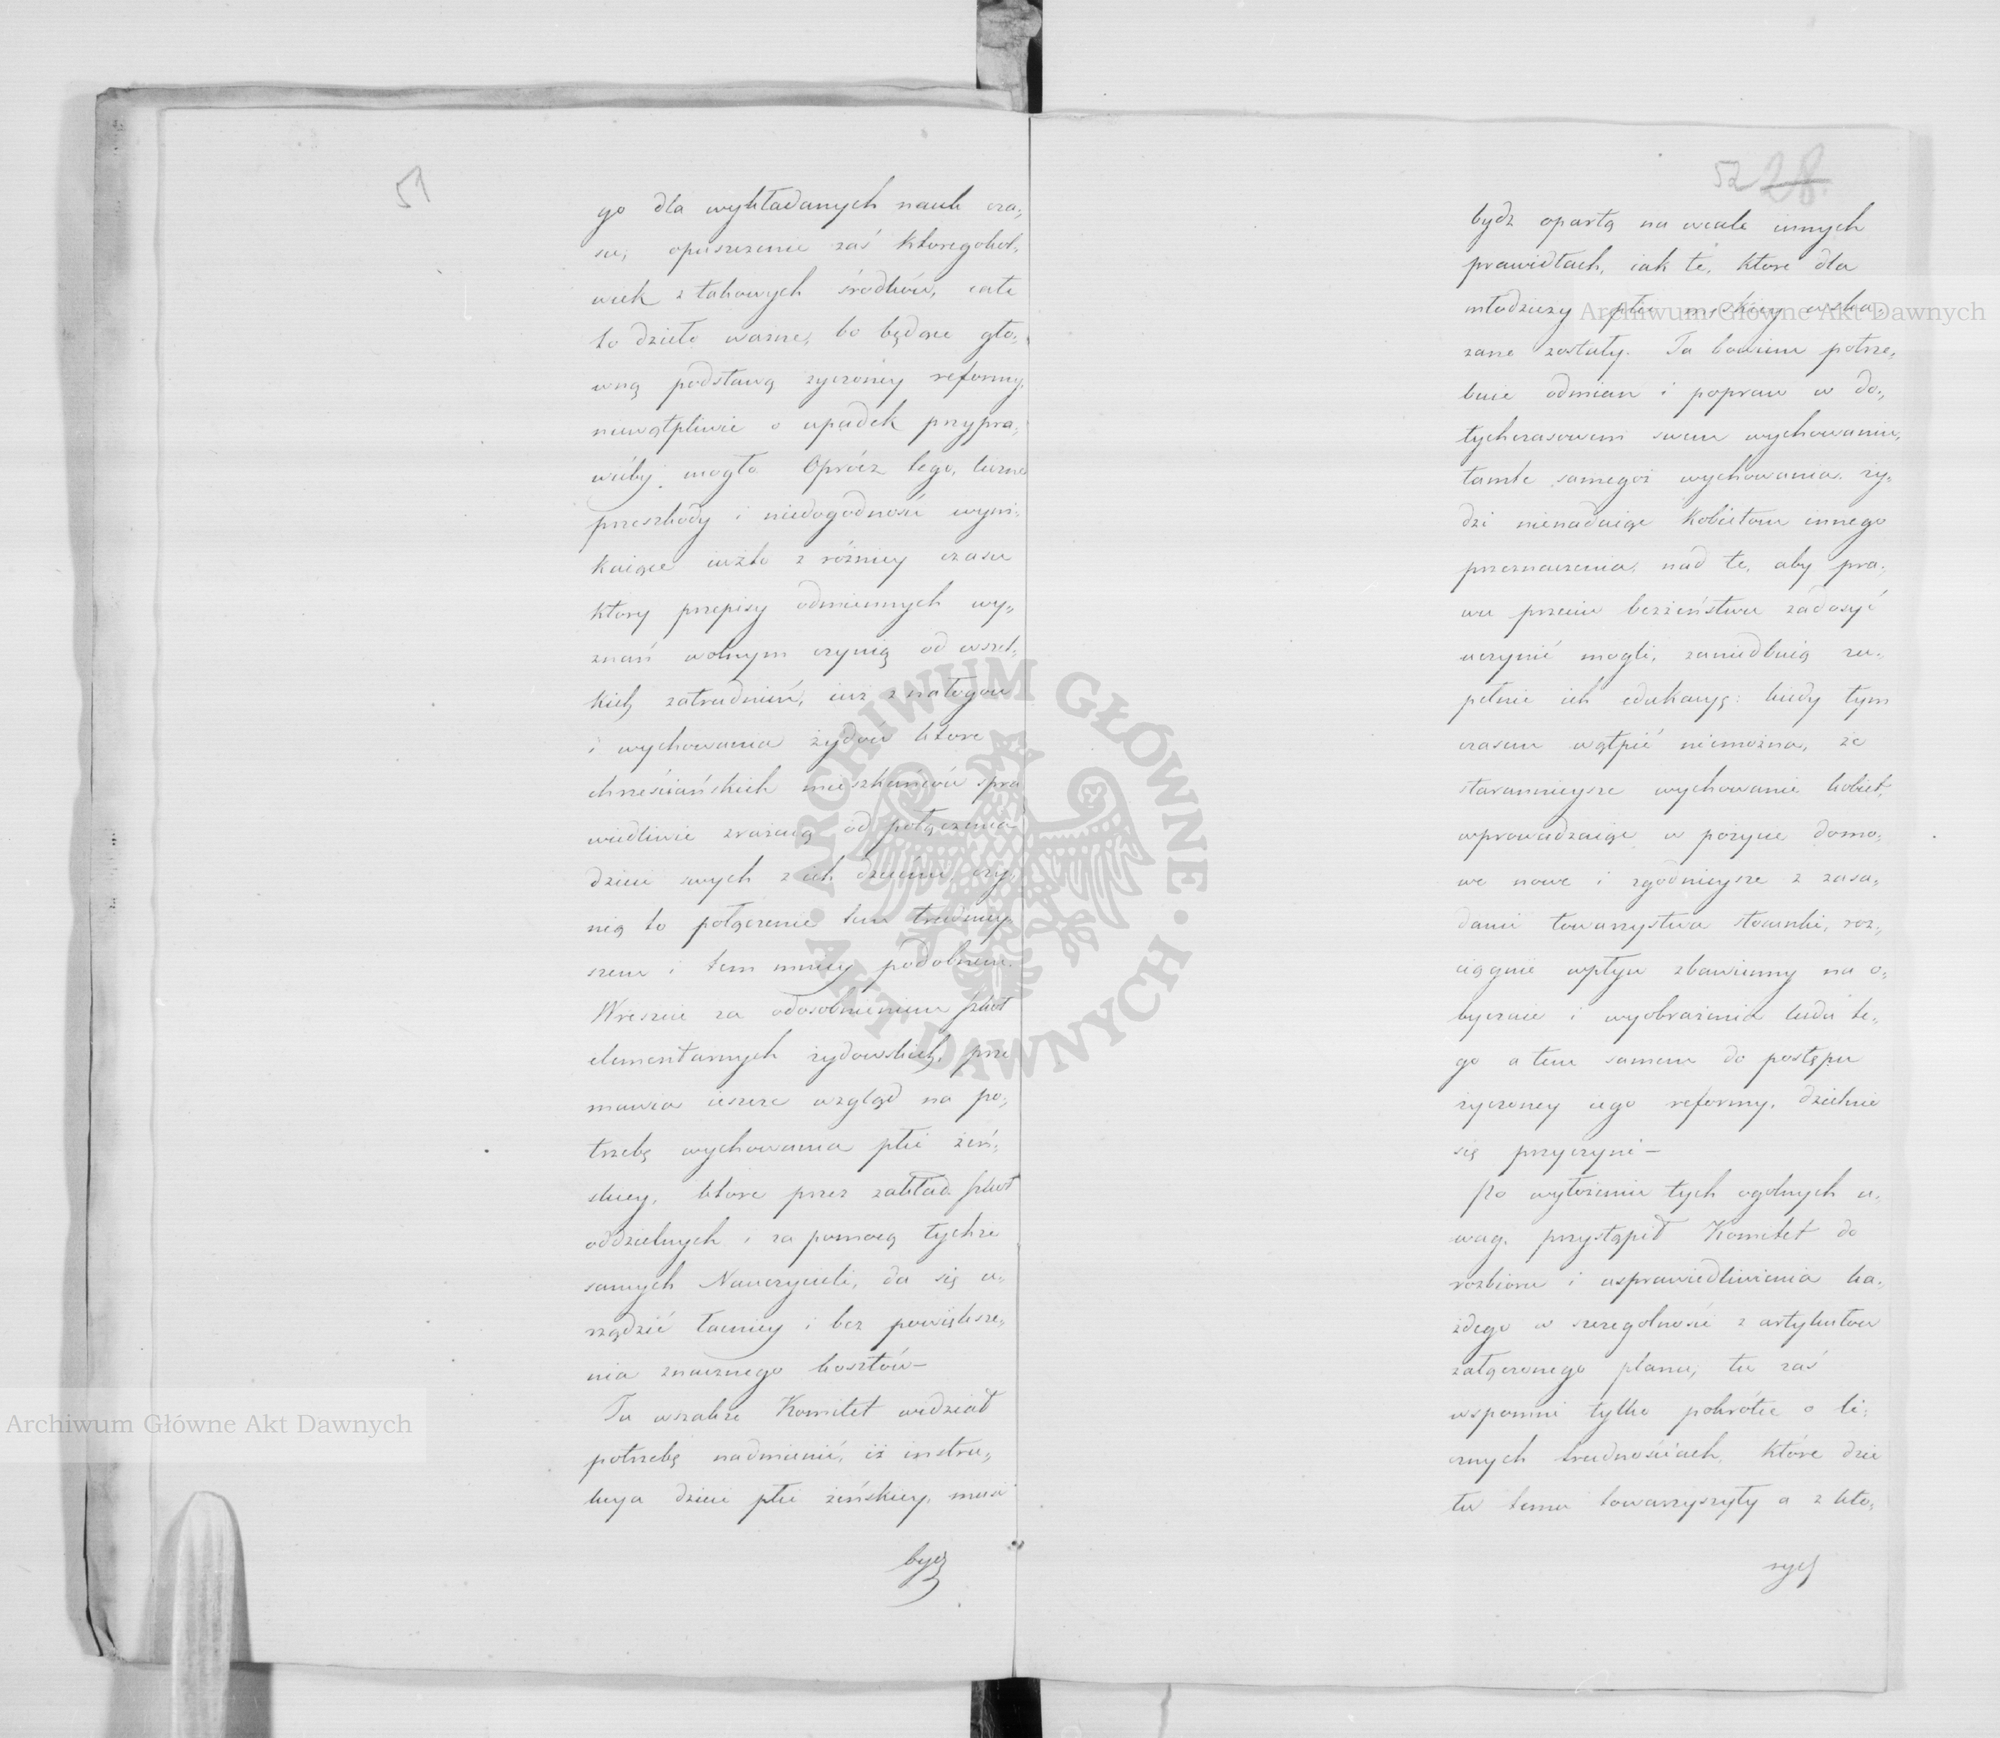 51
go dla wykładanych nauk cza„
su; opuszczenie zaś któregokol„
wiek z takowych śródków, całe
to dzieło ważne, bo będące głó„
wną podstawą życzoney reformy,
niewątpliwie o upadek przypra„
wićby mogło. Oprócz tego, liczne
przeszkody i niedogodności wyni„
kaiące iużto z różnicy czasu
który przepisy odmiennych wy„
znań wolnym czynią od wszel„
kich zatrudnień, iuż z nałogów
i wychowania żydów które
chrześciańskich mieszkańców spra
wiedliwie zrażaią od połączenia
dzieci swych z ich dziećmi czy„
nią to połączenie tem trudniey„
szem i tem mniey podobnem.
Wreszcie za odosobnieniem szkół
elementarnych żydowskich, prze
mawia ieszcze wzgląd na po„
trzebę wychowania płci żeń„
skiey, które przez zakład szkół
oddzielnych i za pomocą tychże
samych Nauczycieli, da się u„
rządzić łacniey i bez powiększe„
nia znacznego kosztów—
Tu wszakże Komitet widział
potrzebę nadmienić, iż instru„
kcya dzieci płci żeńskiey, musi
bydź
52 28.
bydź opartą na wcale innych
prawidłach, iak te, które dla
młodzieży płci męskiey wska„
zane zostały. Ta bowiem potrze„
buie odmian i popraw w do„
tychczasowem swem wychowaniu,
tamte samegoż wychowania. Ży„
dzi nienadaiąc kobietom innego
przeznaczenia, nad te, aby pra„
wu przeciw bezżeństwu zadosyć
uczynić mogli, zaniedbuią zu„
pełnie ich edukacyę: kiedy tym
czasem wątpić niemożna, że
starannieysze wychowanie kobiet,
wprowadzaiąc w pożycie domo„
we nowe i zgodnieysze z zasa„
dami towarzystwa stosunki, roz„
ciągnie wpływ zbawienny na o„
byczaie i wyobrażenia ludu te„
go a tem samem do postępu
życzoney iego reformy, dzielnie
się przyczyni—
Po wyłożeniu tych ogólnych u„
wag, przystąpił Komitet do
rozbioru i usprawiedliwienia ka„
żdego w szczególności z artykułów
załączonego planu; tu zaś
wspomni tylko pokrótce o li„
cznych trudnościach, które dzie
łu temu towarzyszyły a z któ„
rych